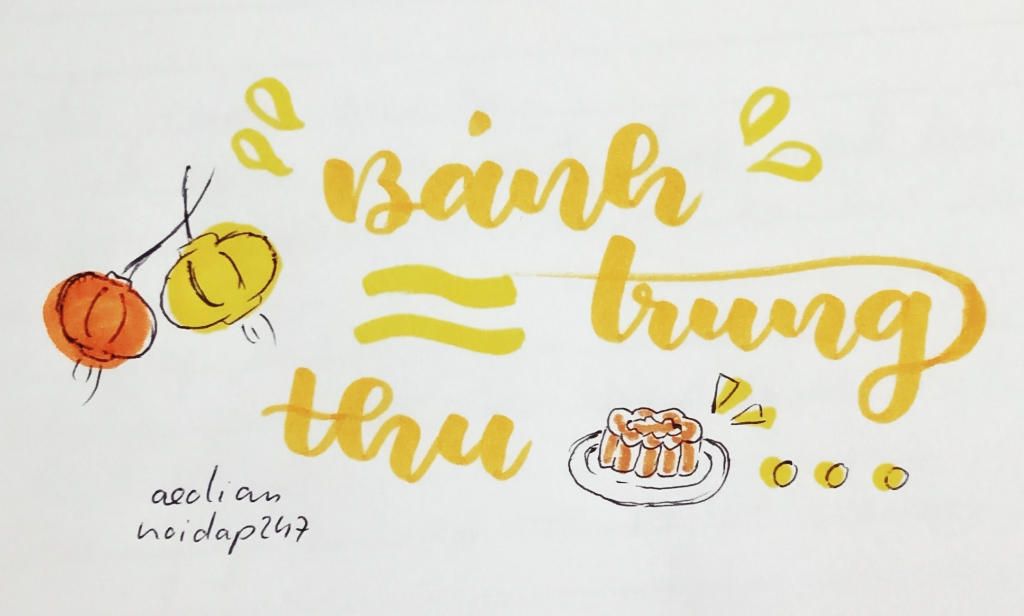 Bánh
trung
thu
aedian
hoidap247